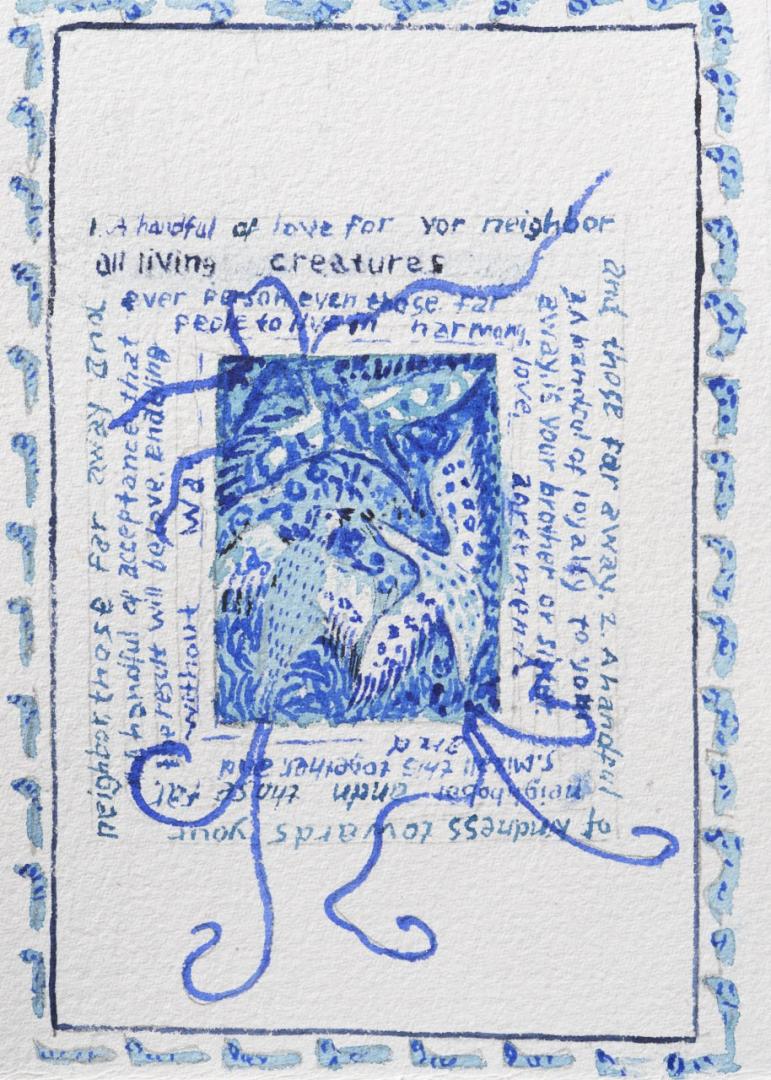 1. A handful of love for yor neighbor
all living creatures
ever person even those far
people to live in harmony,
and those far away. 2. A handful
A handful of loyalty to your
away is your brother or
love, agreement
of kindness towards your
those far
mix all this together and
those far away and
handful of acceptance that
result will be love. Ending
without wa